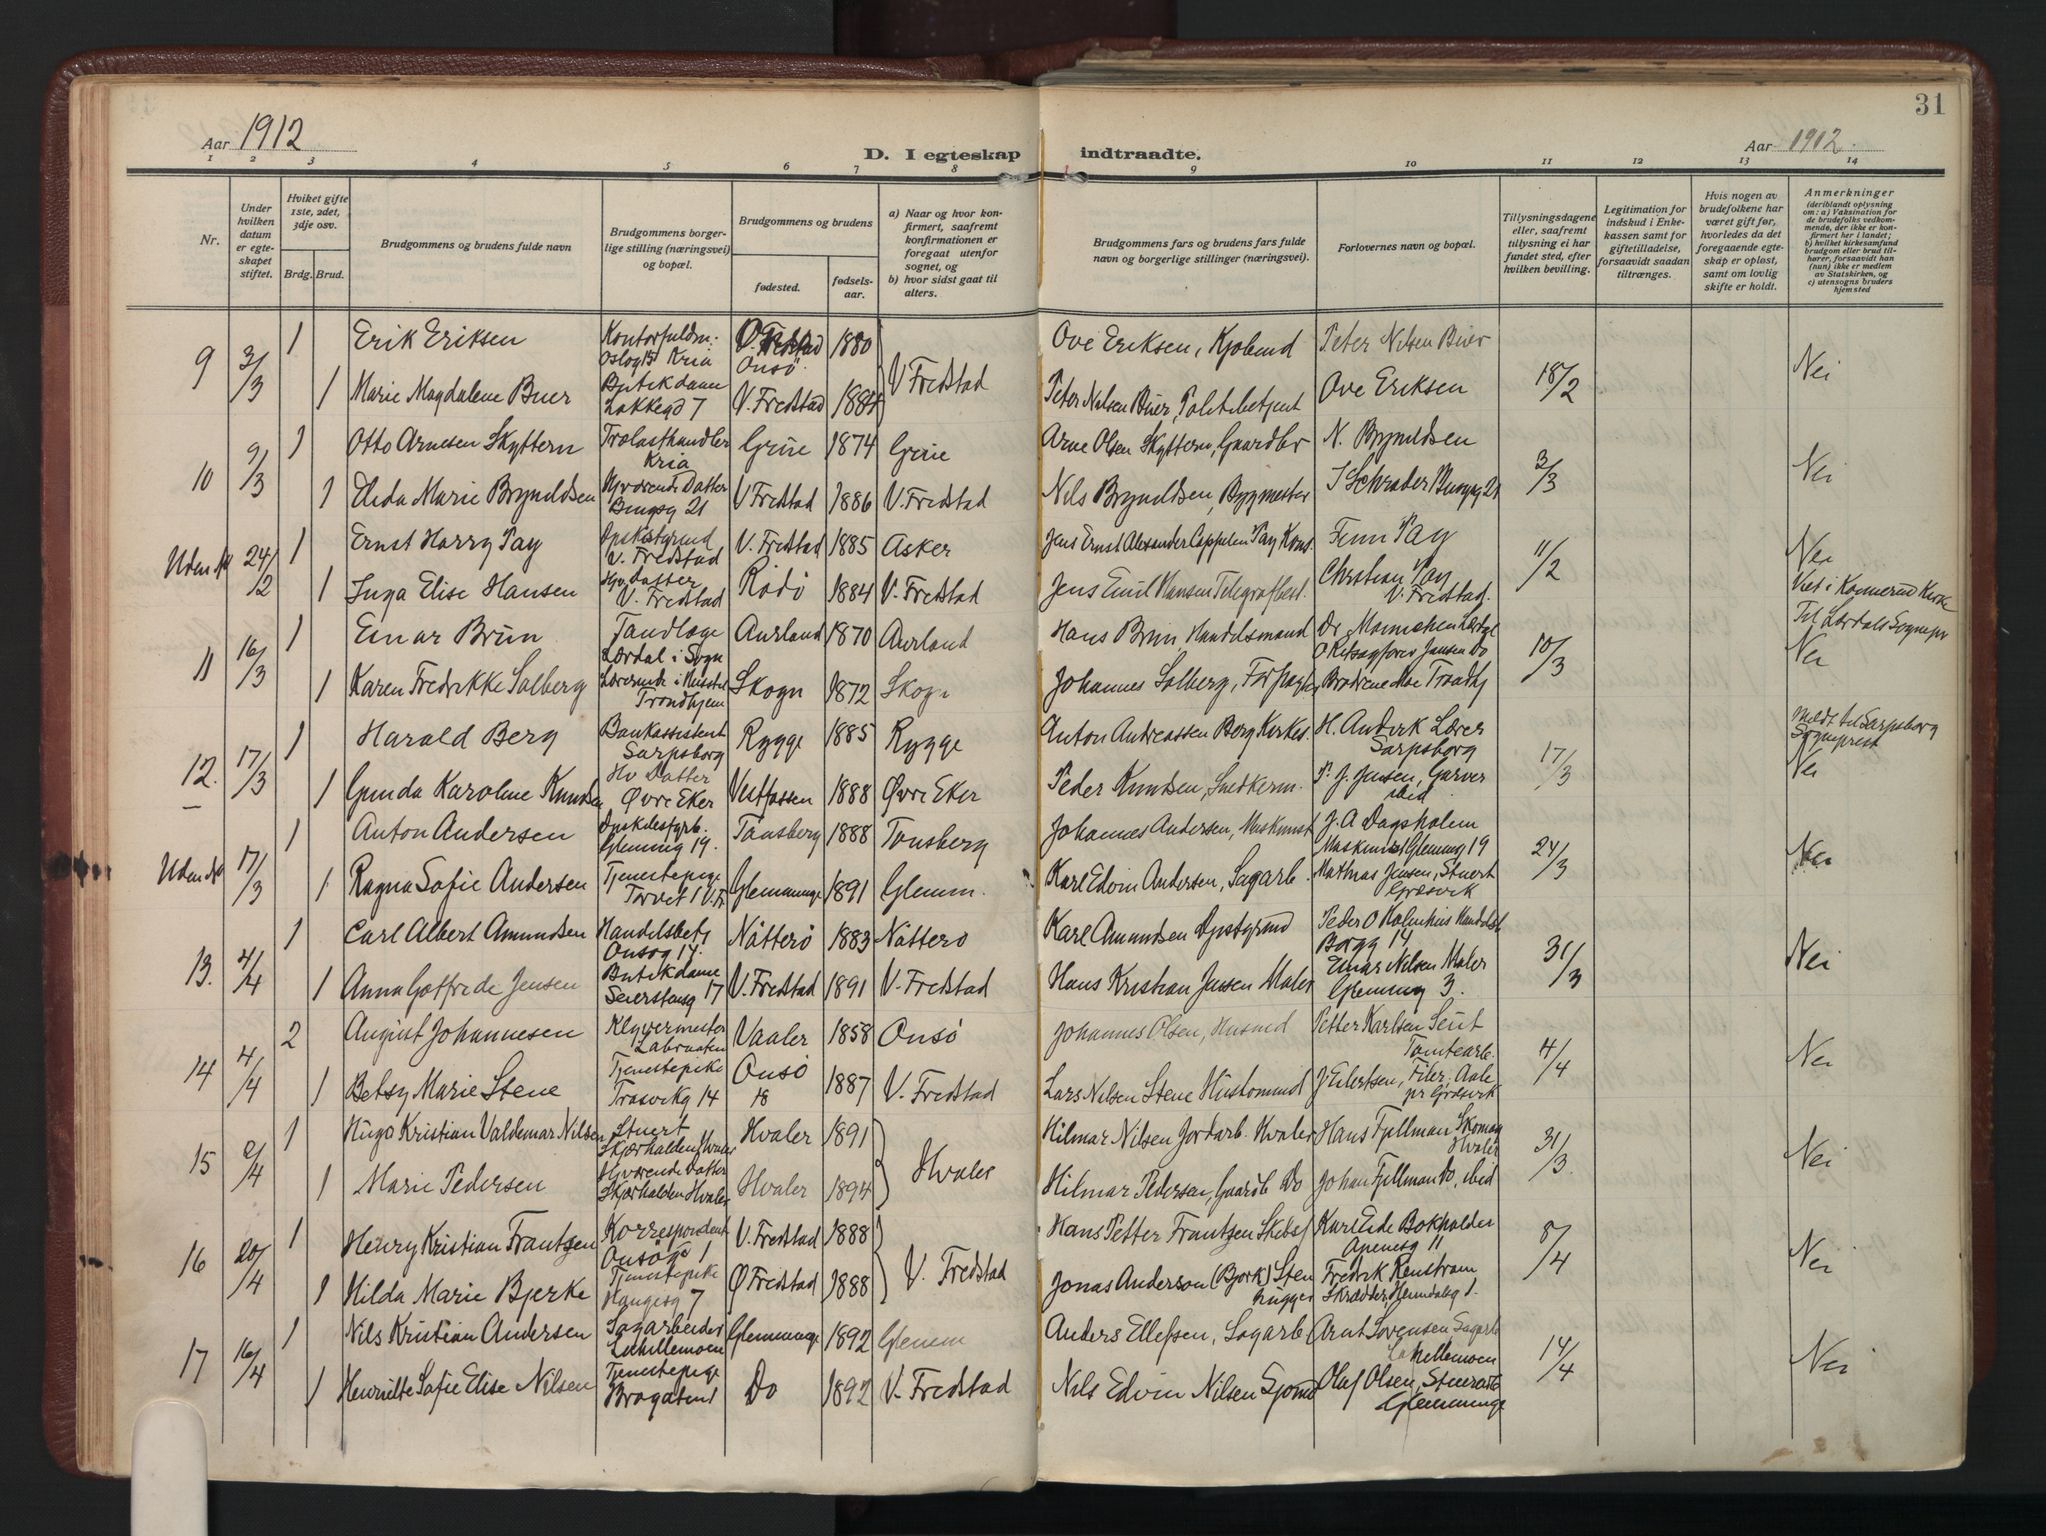 31
Aar 1912
D. I egteskap indtraadte.
Aar 1912.
1 2 3 4 5 6 7 8 9 10 11 12 13 14
Nr.
Under hvilken datum er egteskapet stiftet.
Hviket gifte 1ste, 2det, 3dje osv.
Brdg. Brud.
Brudgommens og brudens fulde navn
Brudgommens borgerlige stilling (næringsvei) og bopæl.
Brudgommens og brudens
fødested. fødselsaar.
a) Naar og hvor konfirmert, saafremt konfirmationen er foregaat utenfor sognet, og
b) hvor sidst gaat til alters.
Brudgommens fars og brudens fars fulde navn og borgerlige stillinger (næringsvei).
Forlovernes navn og bopæl.
Tillysningsdagene eller, saafremt tillysning ei har fundet sted, efter hvilken bevilling.
Legitimation for indskud i Enkekassen samt for giftetilladelse, forsaavidt saadan tiltrænges.
Hvis nogen av brudefolkene har været gift før, hvorledes da det foregaaende egteskap er opløst, samt om lovlig skifte er holdt.
Anmerkninger (deriblandt oplysning om: a) Vaksination for de brudefolks vedkommende, der ikke er konfirmert her i landet; b) hvilket kirkesamfund brudgom eller brud tilhører, forsaavidt han (hun) ikke er medlem av Statskirken, og c) utensogns bruders hjemsted
9 3/3 1 Erik Eriksen Onsö 1880 V Fredstad Ove Eriksen, Peter Nilsen Buer 18/2 Nei
1 Marie Magdalene Buer Butikdame Lakkegd 7 V. Fredstad 1884 Peter Nilsen Buer, Politibetjent Ove Eriksen
10 9/3 1 Otto Arnesen Skyttern Trælasthandler Kria Grue 1874 Grue Arne Olsen Skyttern, Gaardbr N. Bryndldsen 3/3 Nei
1 Elida Marie Bryndldsen Hjværende Datter 21 V Fredstad 1886 V. Fredstad Nils Bryndldsen, Bygmester
Uden No 24/2 1 Ernst Harry Pay V. Fredstad V. Fredstad 1885 Asker Jens Ernst Alexander Cappelen Pay Kons. Finn Pay 11/2 Nei
1 Inga Elise Hansen Hjv. Datter V. Fredstad Rödö 1884 V. Fredstad Jens Emil Hansen Telegrafbest. Christian Pay V. Fredstad. Viet i Konnerud Kirke
11 16/3 1 Einar Brun Tandlæge Lærdal i Sogn Aurland 1870 Aurland Hans Brun Handelsmand 10/3 Til Lærdals Sognepr Nei
1 Karen Fredrikke Solberg Trondhjem Skogn 1872 Skogn Johannes Solberg, Forpagter Brødrene Moe Trondhj
12. 17/3 1 Harald Berg Bankassistent Sarpsborg Rygge 1885 Rygge Anton Andreassen Berg Kirkes. Lærer Sarpsborg 17/3 Meldt til Sarpsborg Sogneprest Nei
1 Gunda Karoline Knudsen Hv Datter Øvre Eker Vestfossen 1888 Øvre Eker Peder Knudsen, Snedkerm. P. J. Jensen, Garver ibid
Uden No 17/3 1 Anton Andersen Glemmng 19. Tönsberg 1888 Tönsberg Johannes Andersen, Maskinist J. A Dagsholm Maskinist Glemmng 19 24/3 Nei
1 Ragna Sofie Andersen Tjenestepige Torvet 1 V. Fr Glemminge 1891 Glemm. Karl Edvin Andersen, Sagarb. Mathias Jensen, Stuert Græsvik
13. 4/4 1 Carl Albert Amundsen Handelsbetj Onsög 17. Nötterö 1883 Nötterö Karl Amundsen Peder O Holmhus 31/3 Nei
1 Anna Gotfrede Jensen Butikdame Seierstensg 17 V. Fredstad 1891 V. Fredstad Hans Kristian Jensen Maler Einar Nilsen Maler Glemmng 3.
14 4/4 2 August Johannesen Vaaler 1858 Onsö Johannes Olsen, Husmd Petter Karlsen Seut Tomtearb. 4/4 Nei
1 Betsy Marie Stene Tjenestepike Trosvikg 14 Onsö 18 1887 V. Fredstad Lars Nilsen Stene Hustomtmd J Eilertsen, Filer, Aale pr Græsvik
15 2/4 1 Hugo Kristian Valdemar Nilsen Stuert Skjærhalden Hvaler Hvaler 1891 Hvaler Hilmar Nilsen Jordarb. Hvaler Hans Fjellman Skomag Hvaler 31/3. Nei
1 Marie Pedersen Hjværende Datter Skjærhalden Hvaler Hvaler 1894 Hilmar Pedersen, Gaardb Do Johan Fjellman Do, ibid
16 20/4 1 Henry Kristian Frantzen Korrespondent Onsögt 1 V. Fredstad 1888 V. Fredstad Hans Petter Frantzen Karl Eide Bokholder Apenesg 11 8/4 Nei
1 Hilda Marie Bjerke Tjenestepike Haugesg 7 Ø Fredstad 1888 Jonas Anderson (Bjork) Stenhugger Fredrik Renstrøm Skrædder,
17 16/4 1 Nils Kristian Andersen Sagarbeider Lahellemoen Glemminge 1892 Glemm Anders Ellefsen, Sagarb Arnt Sorensen Sagarb Lahellemoen 14/4 Nei
1 Henriette Sofie Elise Nilsen Tjenestepige Do 1892 V. Fredstad Nils Edvin Nilsen Sjömd Olaf Olsen, Glemminge